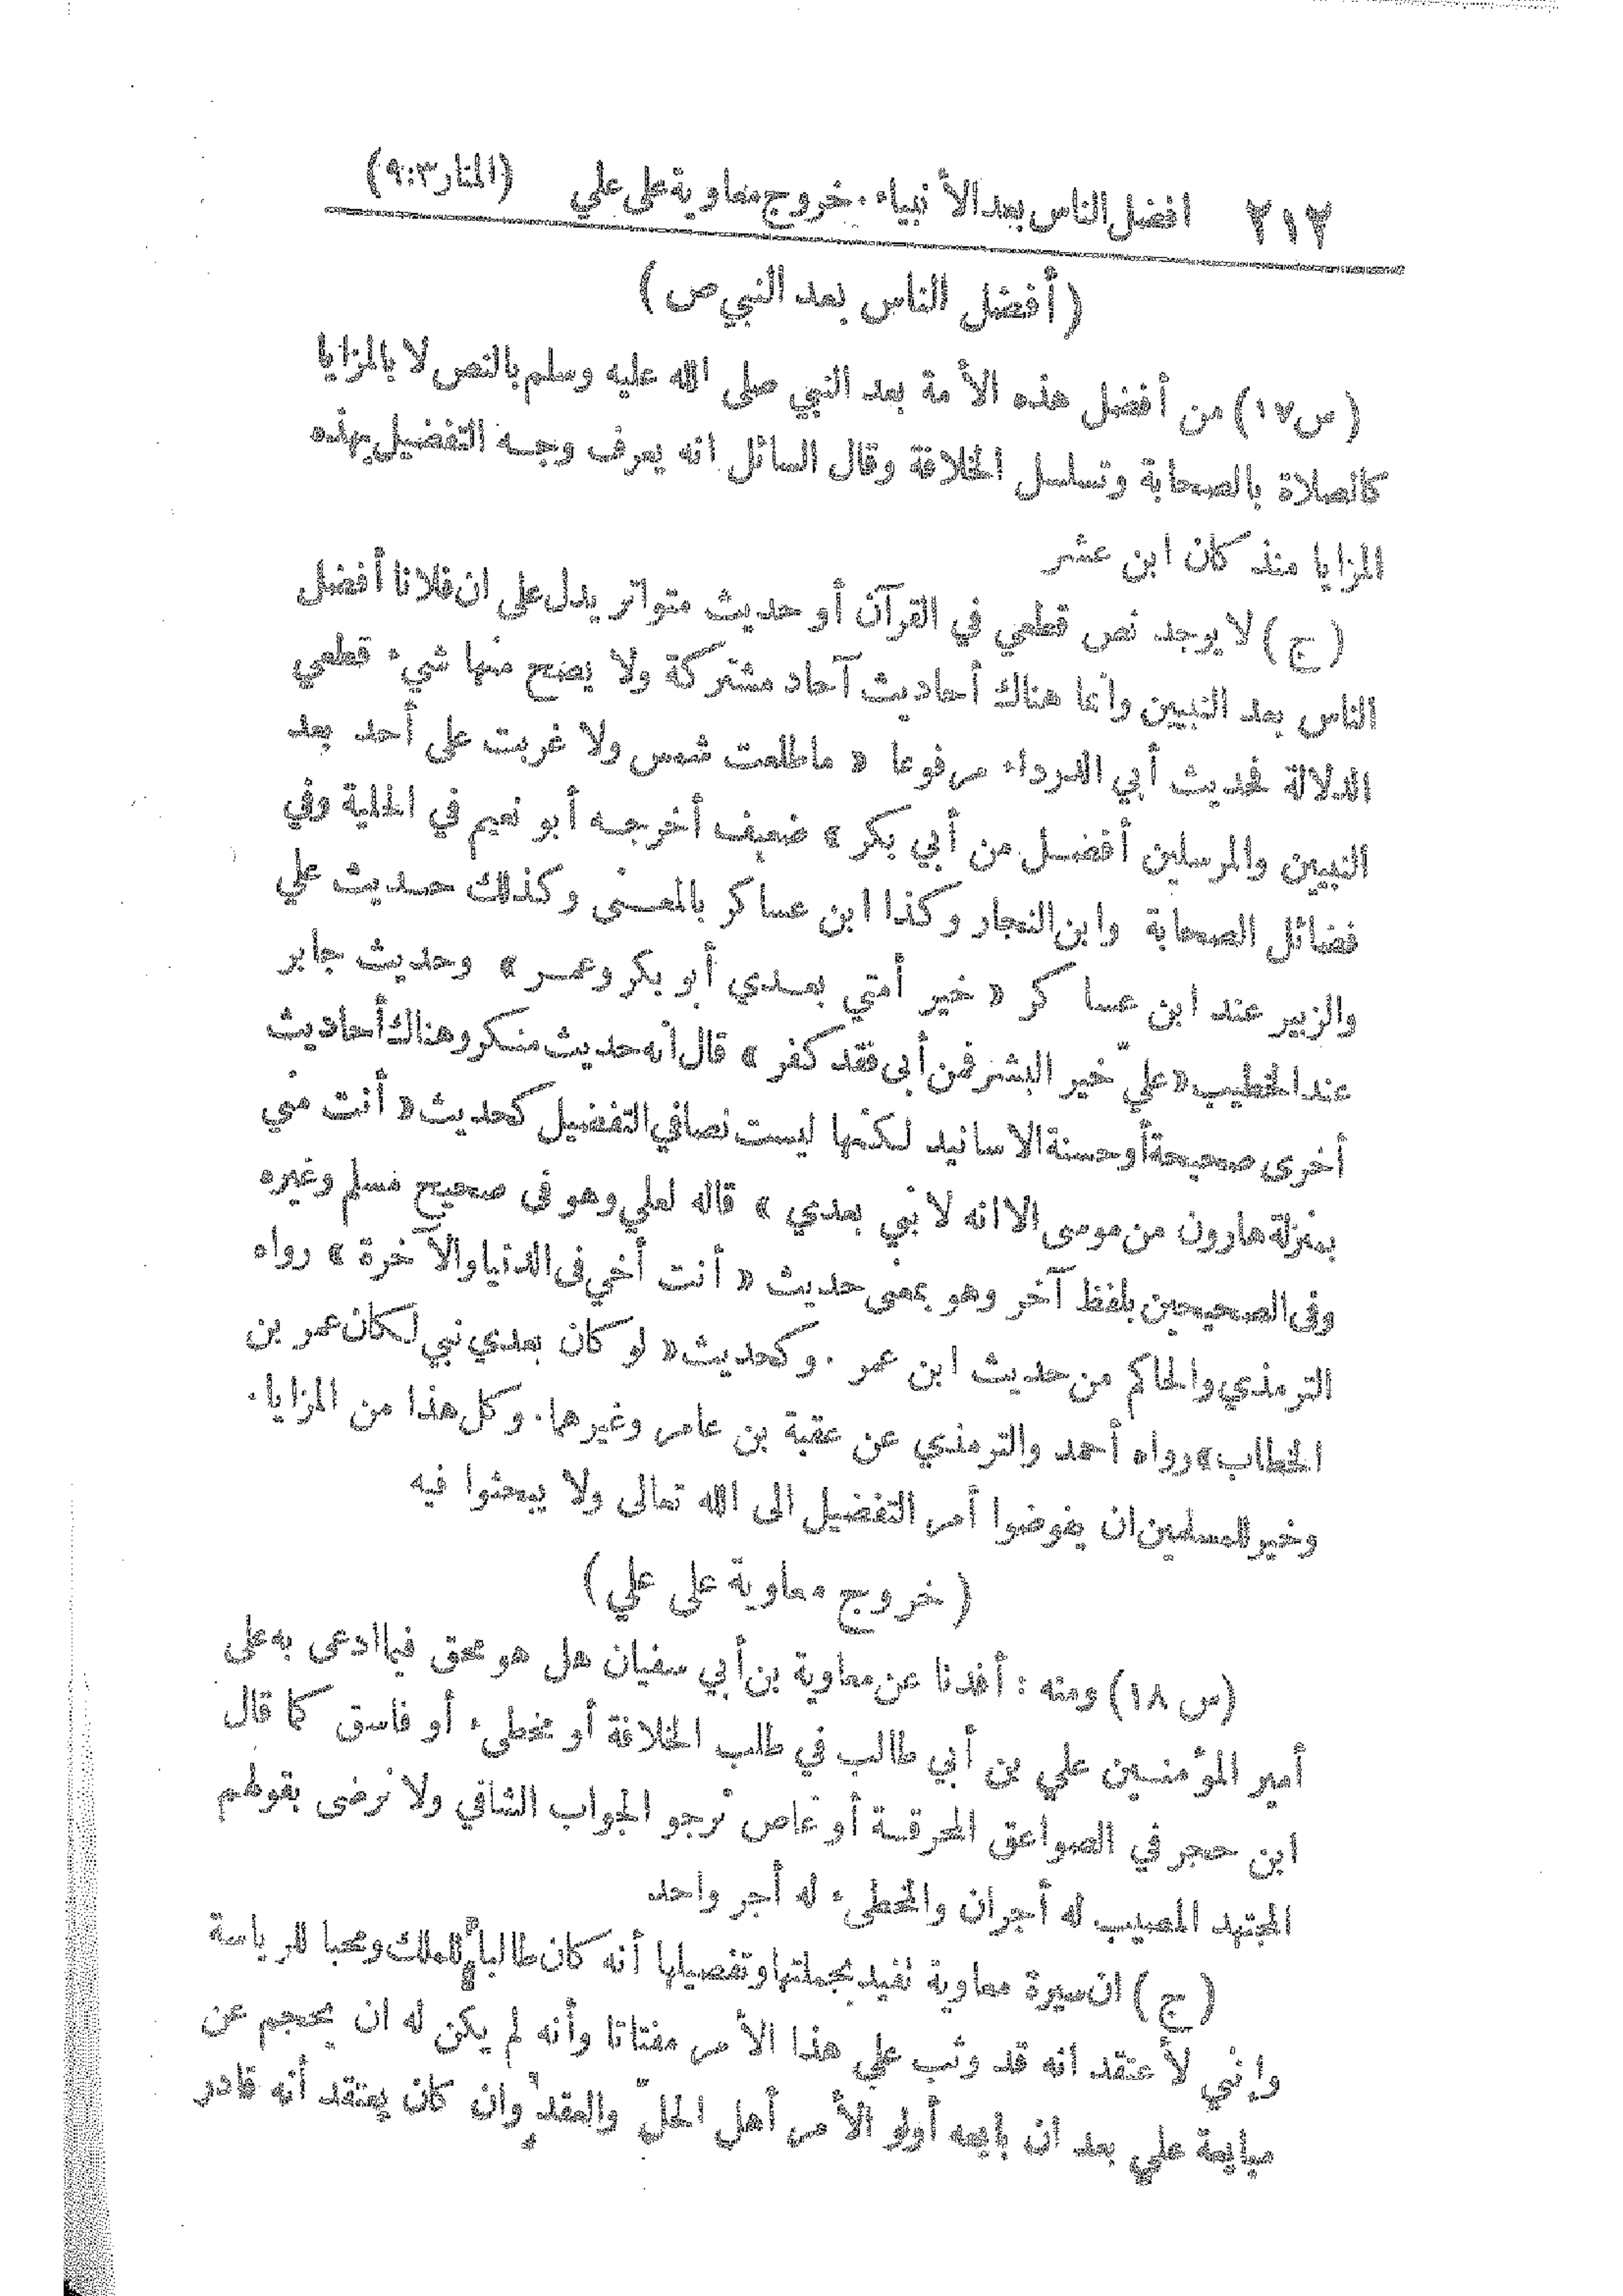 ٢١٢ افضل الناس بعد الأنبياء . خروج معاوية على علي (المنار ٣ : ٩)
( أفضل الناس بعد النبي ص )
( س ١٧ ) من أفضل هذه الأمة بعد النبي صلى الله عليه وسلم بالنص لا بالمزايا
كالصلاة بالصحابة وتسلسل الخلافة وقال السائل انه يعرف وجه التفضيل بهذه
المزايا منذ كان ابن عشر
( ج ) لا يوجد نص قطعي في القرآن أو حديث متواتر يدل على ان فلانا أفضل
الناس بعد النبيين وانما هناك أحاديث آحاد مشتركة ولا يصح منها شيء قطعي
الدلالة فحديث أبي الدرداء مرفوعا « ما طلعت شمس ولا غربت على أحد بعد
النبيين والمرسلين أفضل من أبي بكر » ضعيف أخرجه أبو نعيم في الحلية وفي
فضائل الصحابة وابن النجار وكذا ابن عساكر بالمعنى وكذلك حديث علي
والزبير عند ابن عساكر « خير أمتي بعدي أبو بكر وعمر » وحديث جابر
عند الخطيب « عليّ خير البشر فمن أبى فقد كفر » قال انه حديث منكر وهناك أحاديث
أخرى صحيحة أو حسنة الاسانيد لكنها ليست نصا في التفضيل كحديث « أنت مني
بمنزلة هارون من موسى الا انه لا نبي بعدي » قاله لعلي وهو فى صحيح مسلم وغيره
وفى الصحيحين بلفظ آخر وهو بمعنى حديث « أنت أخي فى الدنيا والآخرة » رواه
الترمذي والحاكم من حديث ابن عمر . وكحديث « لو كان بعدي نبي لكان عمر بن
الخطاب » رواه أحمد والترمذي عن عقبة بن عامر وغيرهما . وكل هذا من المزايا .
وخير للمسلمين ان يفوضوا أمر التفضيل الى الله تعالى ولا يبحثوا فيه
( خروج معاوية على علي )
( س ١٨ ) ومنه : أفدنا عن معاوية بن أبي سفيان هل هو محق فيما ادعى به على
أمير المؤمنين علي بن أبي طالب في طلب الخلافة أو مخطىء أو فاسق كما قال
ابن حجر في الصواعق المحرقة أو عاص نرجو الجواب الشافي ولا نرضى بقولهم
المجتهد المصيب له أجران والمخطىء له أجر واحد
( ج ) ان سيرة معاوية تفيد بجملتها وتفصيلها أنه كان طالبا للملك ومحبا للرياسة
وانني لأعتقد انه قد وثب على هذا الأمر مفتاتا وأنه لم يكن له ان يحجم عن
مبايعة علي بعد ان بايعه أولو الأمر أهل الحلّ والعقد وان كان يعتقد أنه قادر